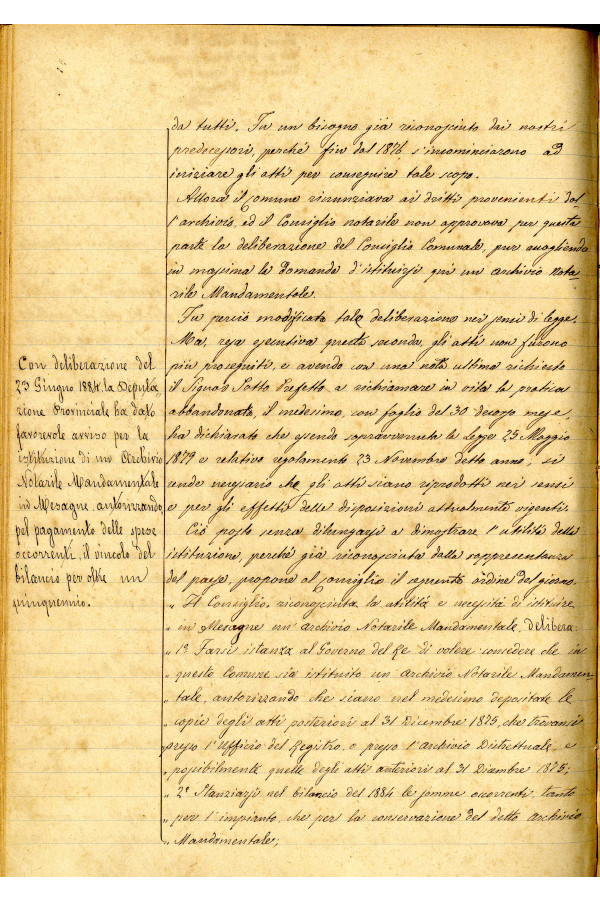 da tutti. Fu un bisogno già riconosciuto dai nostri
predecessori, perché fin dal 1876 s'incominciarono ad
iniziare gli atti per conseguire tale scopo.
Allora il Comune rinunziava ai dritti provenienti dal-
l'archivio, ed il Consiglio notarile non approvava per questa
parte la deliberazione del Consiglio Comunale, pur accogliendo
in massima la domanda d'istituirsi qui un archivio nota-
rile Mandamentale.
Fu perciò modificata tale deliberazione nei sensi di legge.
Ma, resa esecutiva questa seconda, gli atti non furono
più proseguiti, e avendo con una nota ultima richiesto
il Signor Sotto Prefetto a richiamare in vita la pratica
abbandonata, il medesimo, con foglio del 30 decorso mese,
ha dichiarato che essendo sopravvenuta la legge 25 Maggio
1879 e relativo regolamento 23 Novembre detto anno, si
rende necessario che gli atti siano riprodotti nei sensi
e per gli effetti delle disposizioni attualmente vigenti.
Ciò posto senza dilungarsi a dimostrare l'utilità della
istituzione, perché già riconosciuta dalla rappresentanza
del paese, propone al Consiglio il seguente ordine del giorno.
„ Il Consiglio, riconosciuta la utilità e necessità di istituire
„ in Mesagne un archivio Notarile Mandamentale, delibera:
„ 1º Farsi istanza al Governo del Re di volere concedere che in
questo Comune sia istituito un Archivio Notarile Mandamen-
„ tale, autorizzando che siano nel medesimo depositate le
„ copie degli atti posteriori al 31 Dicembre 1875, che trovansi
presso l'Ufficio del Registro, o presso l'archivio Distrettuale, e
„ possibilmente quelle degli atti anteriori al 31 Dicembre 1875;
„ 2º Stanziarsi nel bilancio del 1884 le somme occorrenti, tanto
„ per l'impianto, che per la conservazione del detto Archivio
„ Mandamentale;
Con deliberazione del
23 Giugno 1884 la Deputa
zione Provinciale ha dato
favorevole avviso per la
istituzione di un Archivio
Notarile Mandamentale
in Mesagne, autorizzando
pel pagamento delle spese
occorrenti, il vincolo del
bilancio per oltre un
quinquennio.